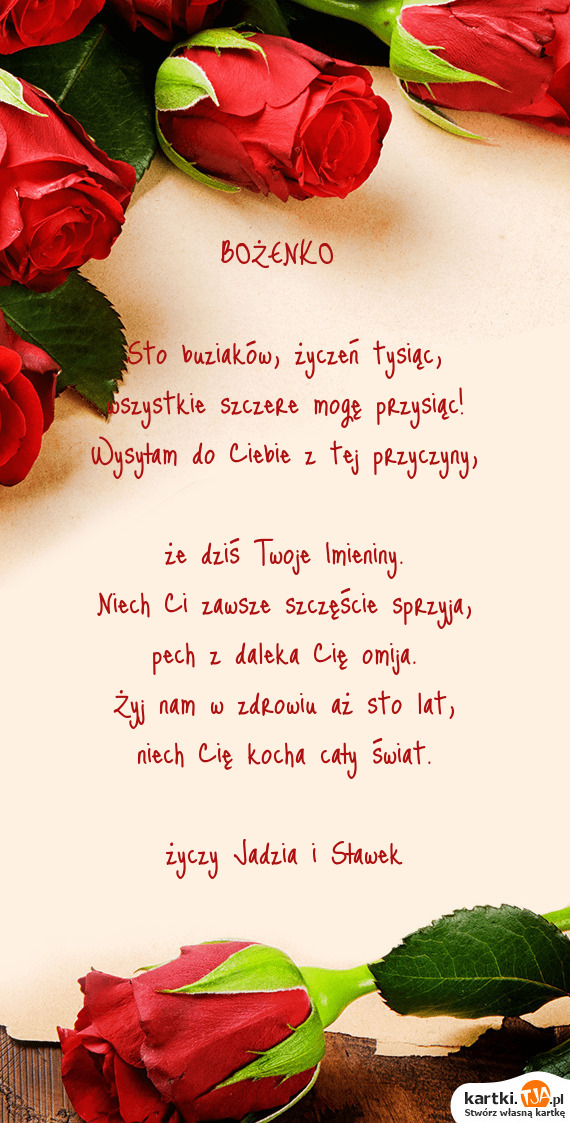 BOŻENKO
Sto buziaków, życzeń tysiąc,
wszystkie szczere mogę przysiąc!
Wysyłam do Ciebie z tej przyczyny,
że dziś Twoje Imieniny.
Niech Ci zawsze szczęście sprzyja,
pech z daleka Cię omija.
Żyj nam w zdrowiu aż sto lat,
niech Cię kocha cały świat.
życzy Jadzia i Sławek
kartki.TJA.pl
Stwórz własną kartkę